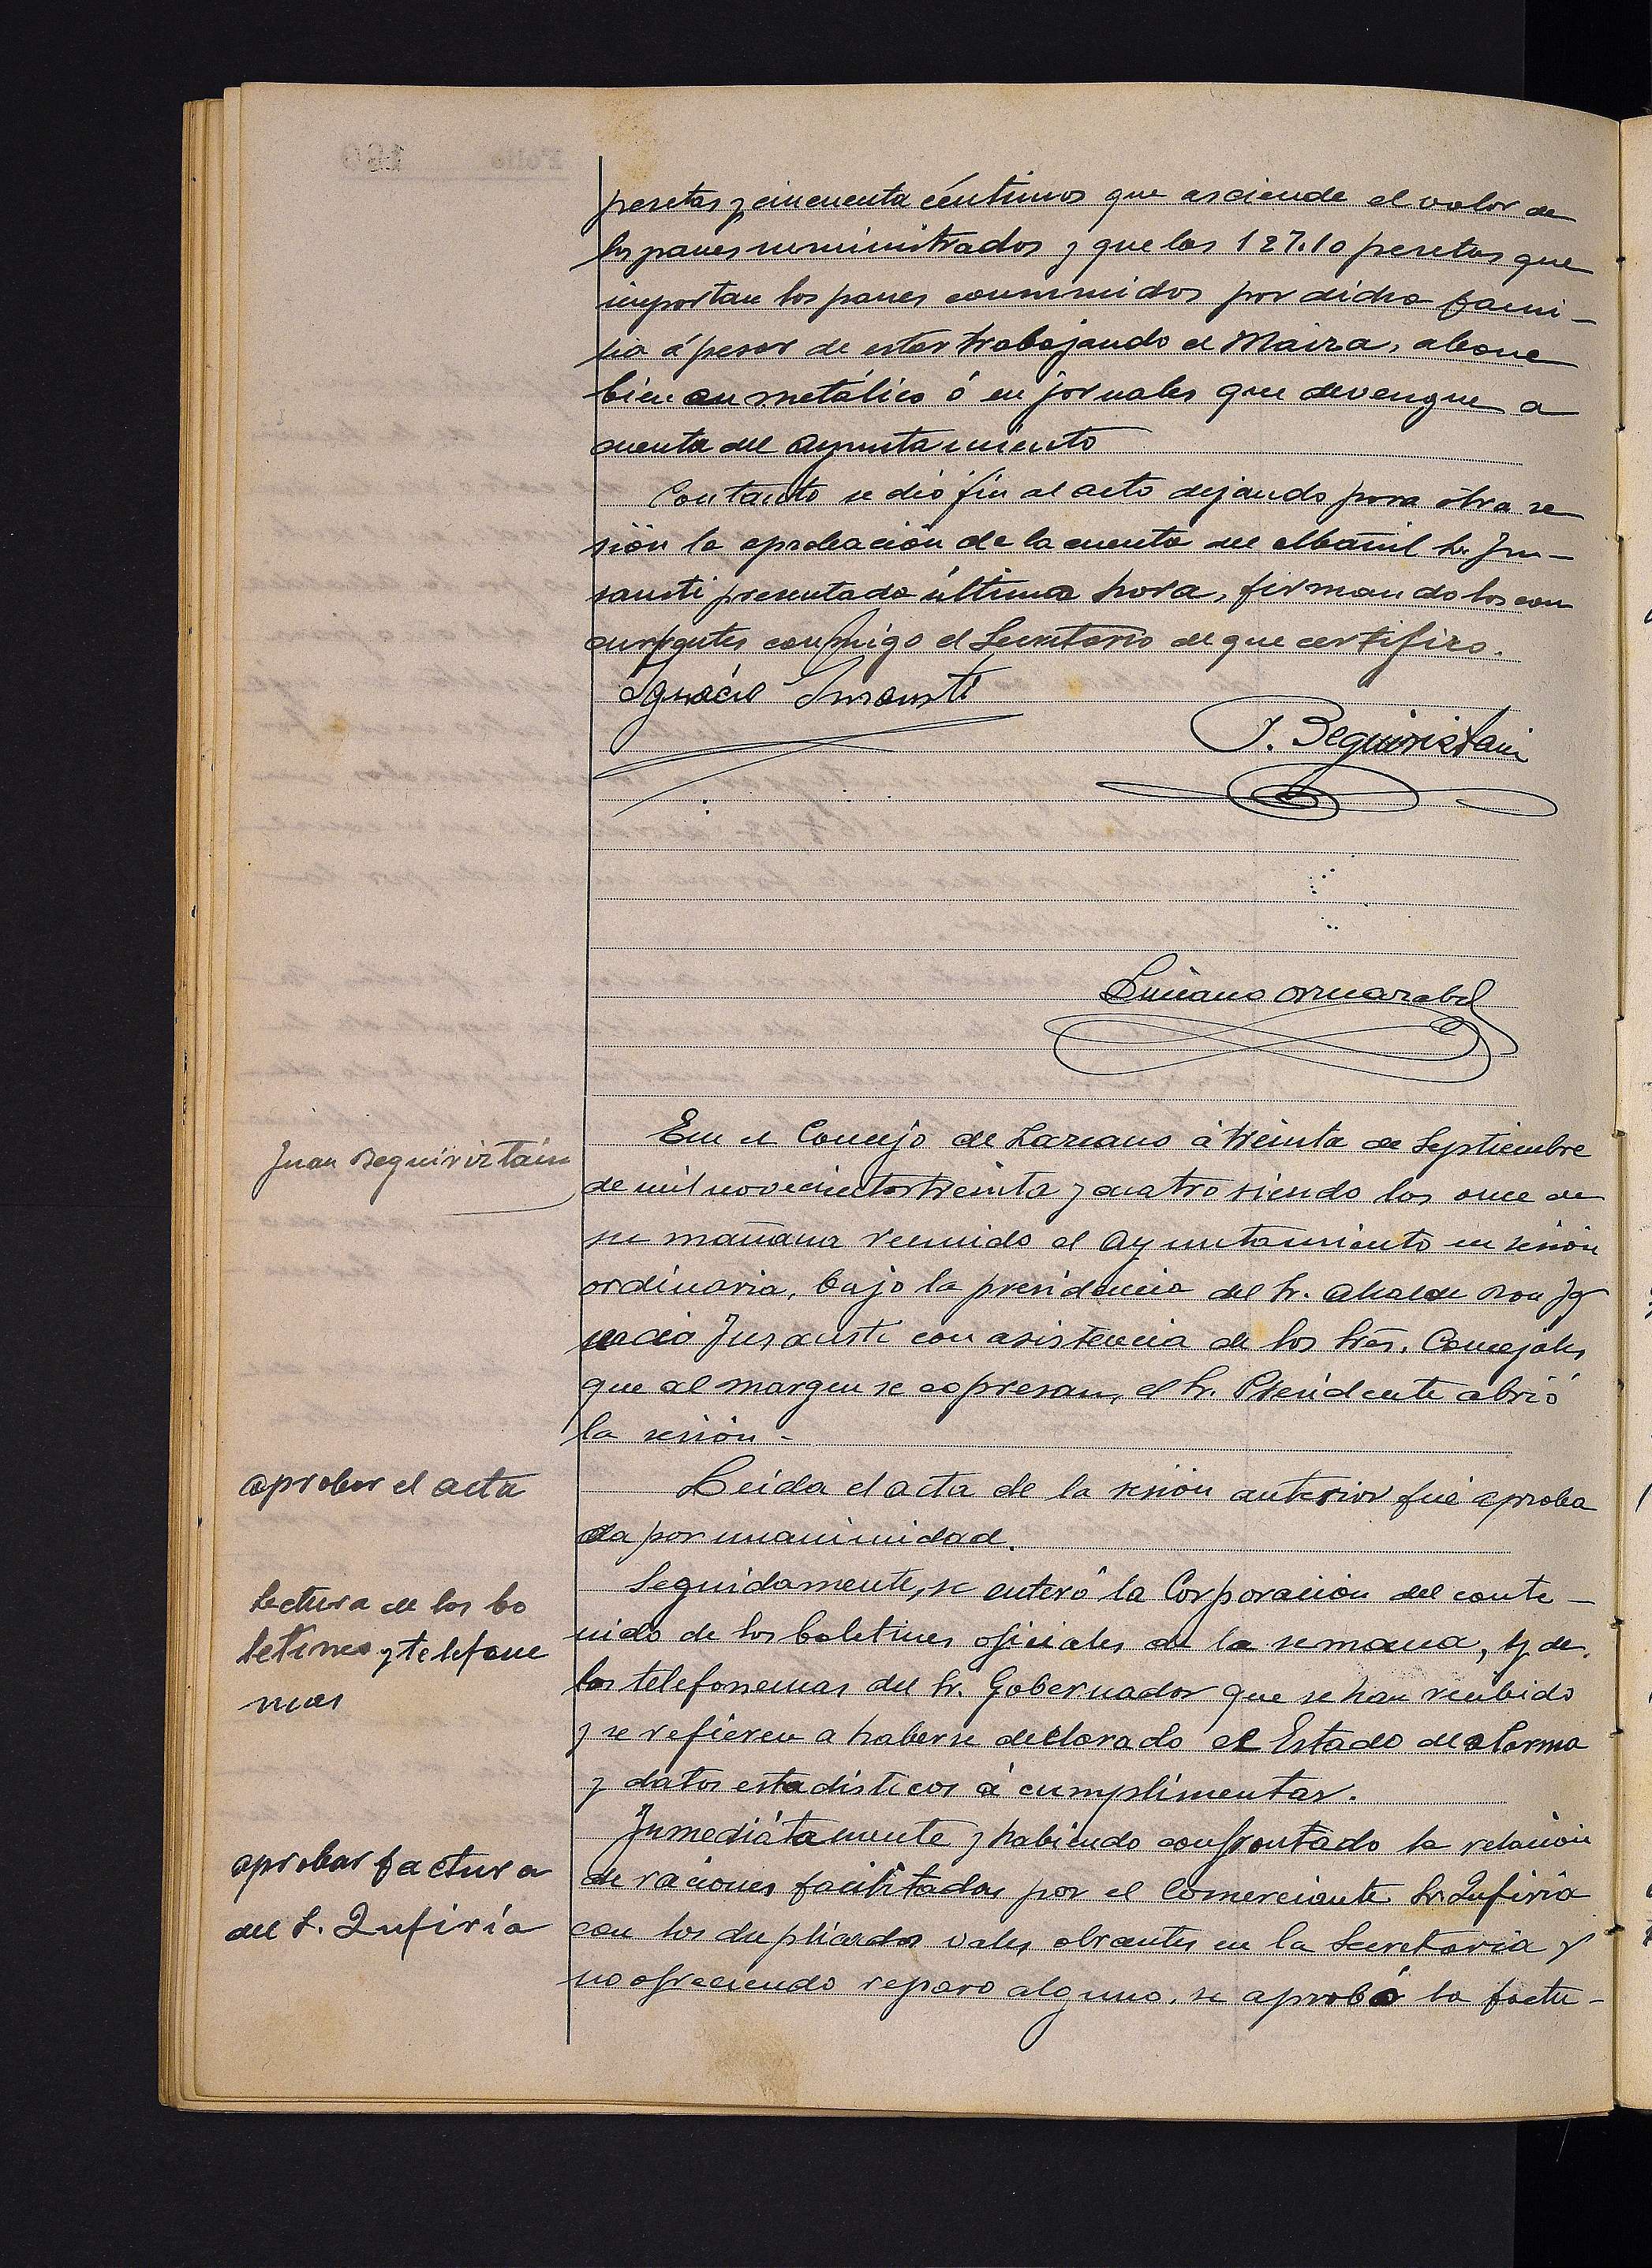 pesetas y cincuenta céntimos que asciende el valor de
los panes suministrados y que las 127.10 pesetas que
importan los panes consumidos por dicha fami-
lia á pesar de estar trabajando el Maiza, abone
bien en metálico ó en jornales que devengue a
cuenta del Ayuntamiento
Con tanto se dió fin al acto dejando para otra se
sión la aprobación de la cuenta del albañil Sr. In-
sausti presentada última hora, firmando los con
currentes conmigo el Secretario de que certifico.
Ignacio Insausti
J. Beguiristain
Luciano
Juan Beguiriztain
En el Concejo de Lazcano á treinta de Septiembre
de mil novecientos treinta y cuatro siendo las once de
su mañana reunido el Ayuntamiento en sesión
ordinaria, bajo la presidencia del Sr. Alcalde Don Ig
nacio Insausti con asistencia de los Sres. Concejales
que al margen se expresan, el Sr. Presidente abrió
la sesión -
aprobar el acta
Leida el acta de la sesión anterior fué aproba
da por unanimidad.
Lectura de los bo
letines y telefone
mas
Seguidamente, se enteró la Corporación del conte-
nido de los boletines oficiales de la semana, y de
los telefonemas del Sr. Gobernador que se han recibido
y se refieren a haberse declarado el Estado de alarma
y datos estadísticos á cumplimentar.
aprobar factura
del S. Zufiría
Inmediátamente y habiendo confrontado la relación
de raciones facilitadas por el Comerciante Sr. Zufiria
con los duplicados vales obrantes en la Secretaria y
no ofreciendo reparo alguno, se aprobó la factu-